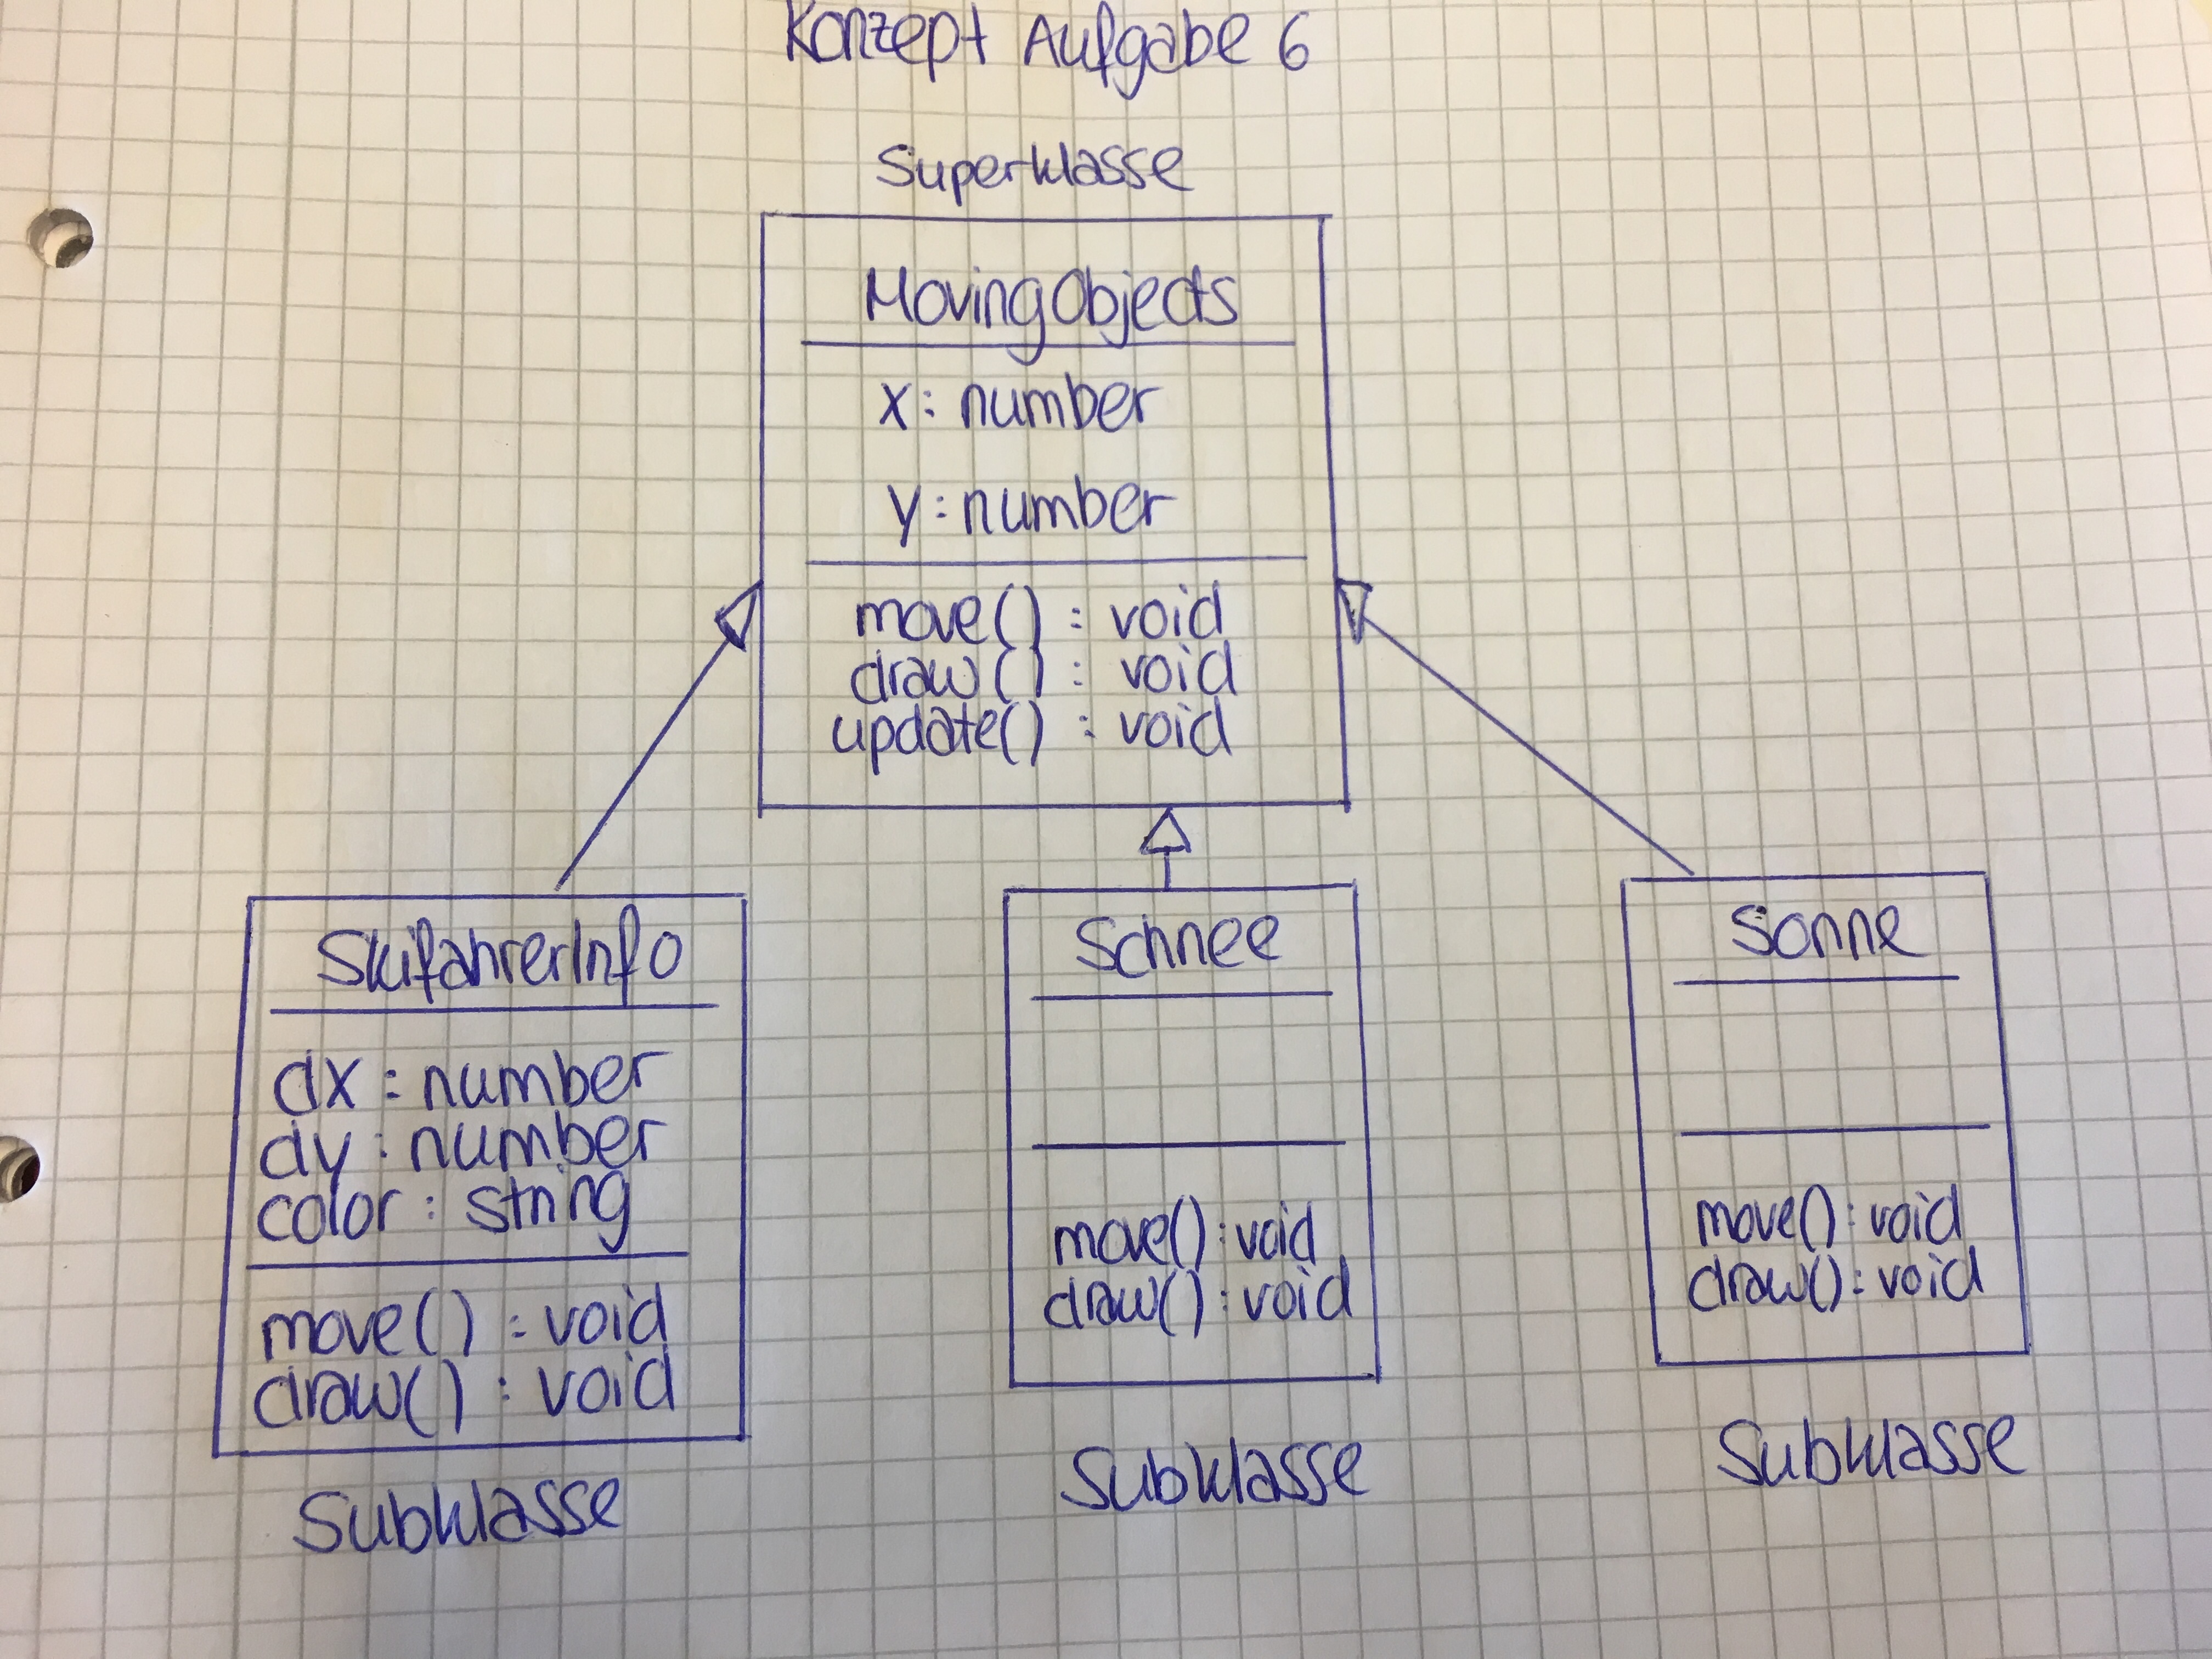 Konzept Aufgabe 6
Superklasse
MovingObjects
x: number
y: number
move() : void
draw() : void
update() : void
SkifahrerInfo
dx : number
dy : number
color : string
move() : void
draw() : void
Subklasse
Schnee
move() : void
draw() : void
Subklasse
Sonne
move() : void
draw() : void
Subklasse